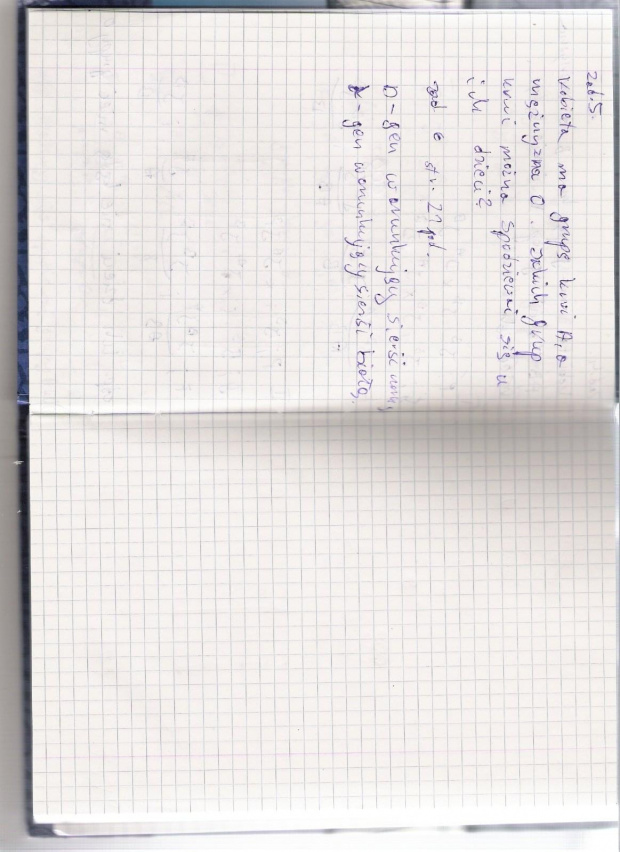 zad.5.
Kobieta ma grupę krwi A, a
mężczyzna 0. Jakich grup
krwi można spodziewać się u
ich dzieci?
zad 6 str. 27 pd.
D - gen warunkujący sierść
k - gen warunkujący sierść białą.